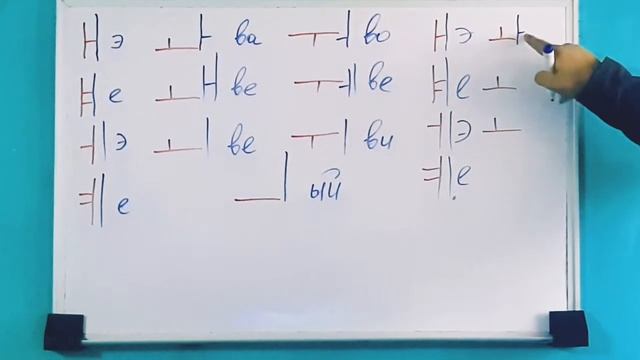 ㅐ э ㅘ ва ㅝ во ㅐ э ㅘ
ㅒ е ㅙ ве ㅞ ве ㅒ е ㅗ
ㅔ э ㅚ ве ㅟ ви ㅔ э ㅗ
ㅖ е ㅢ ый ㅖ е